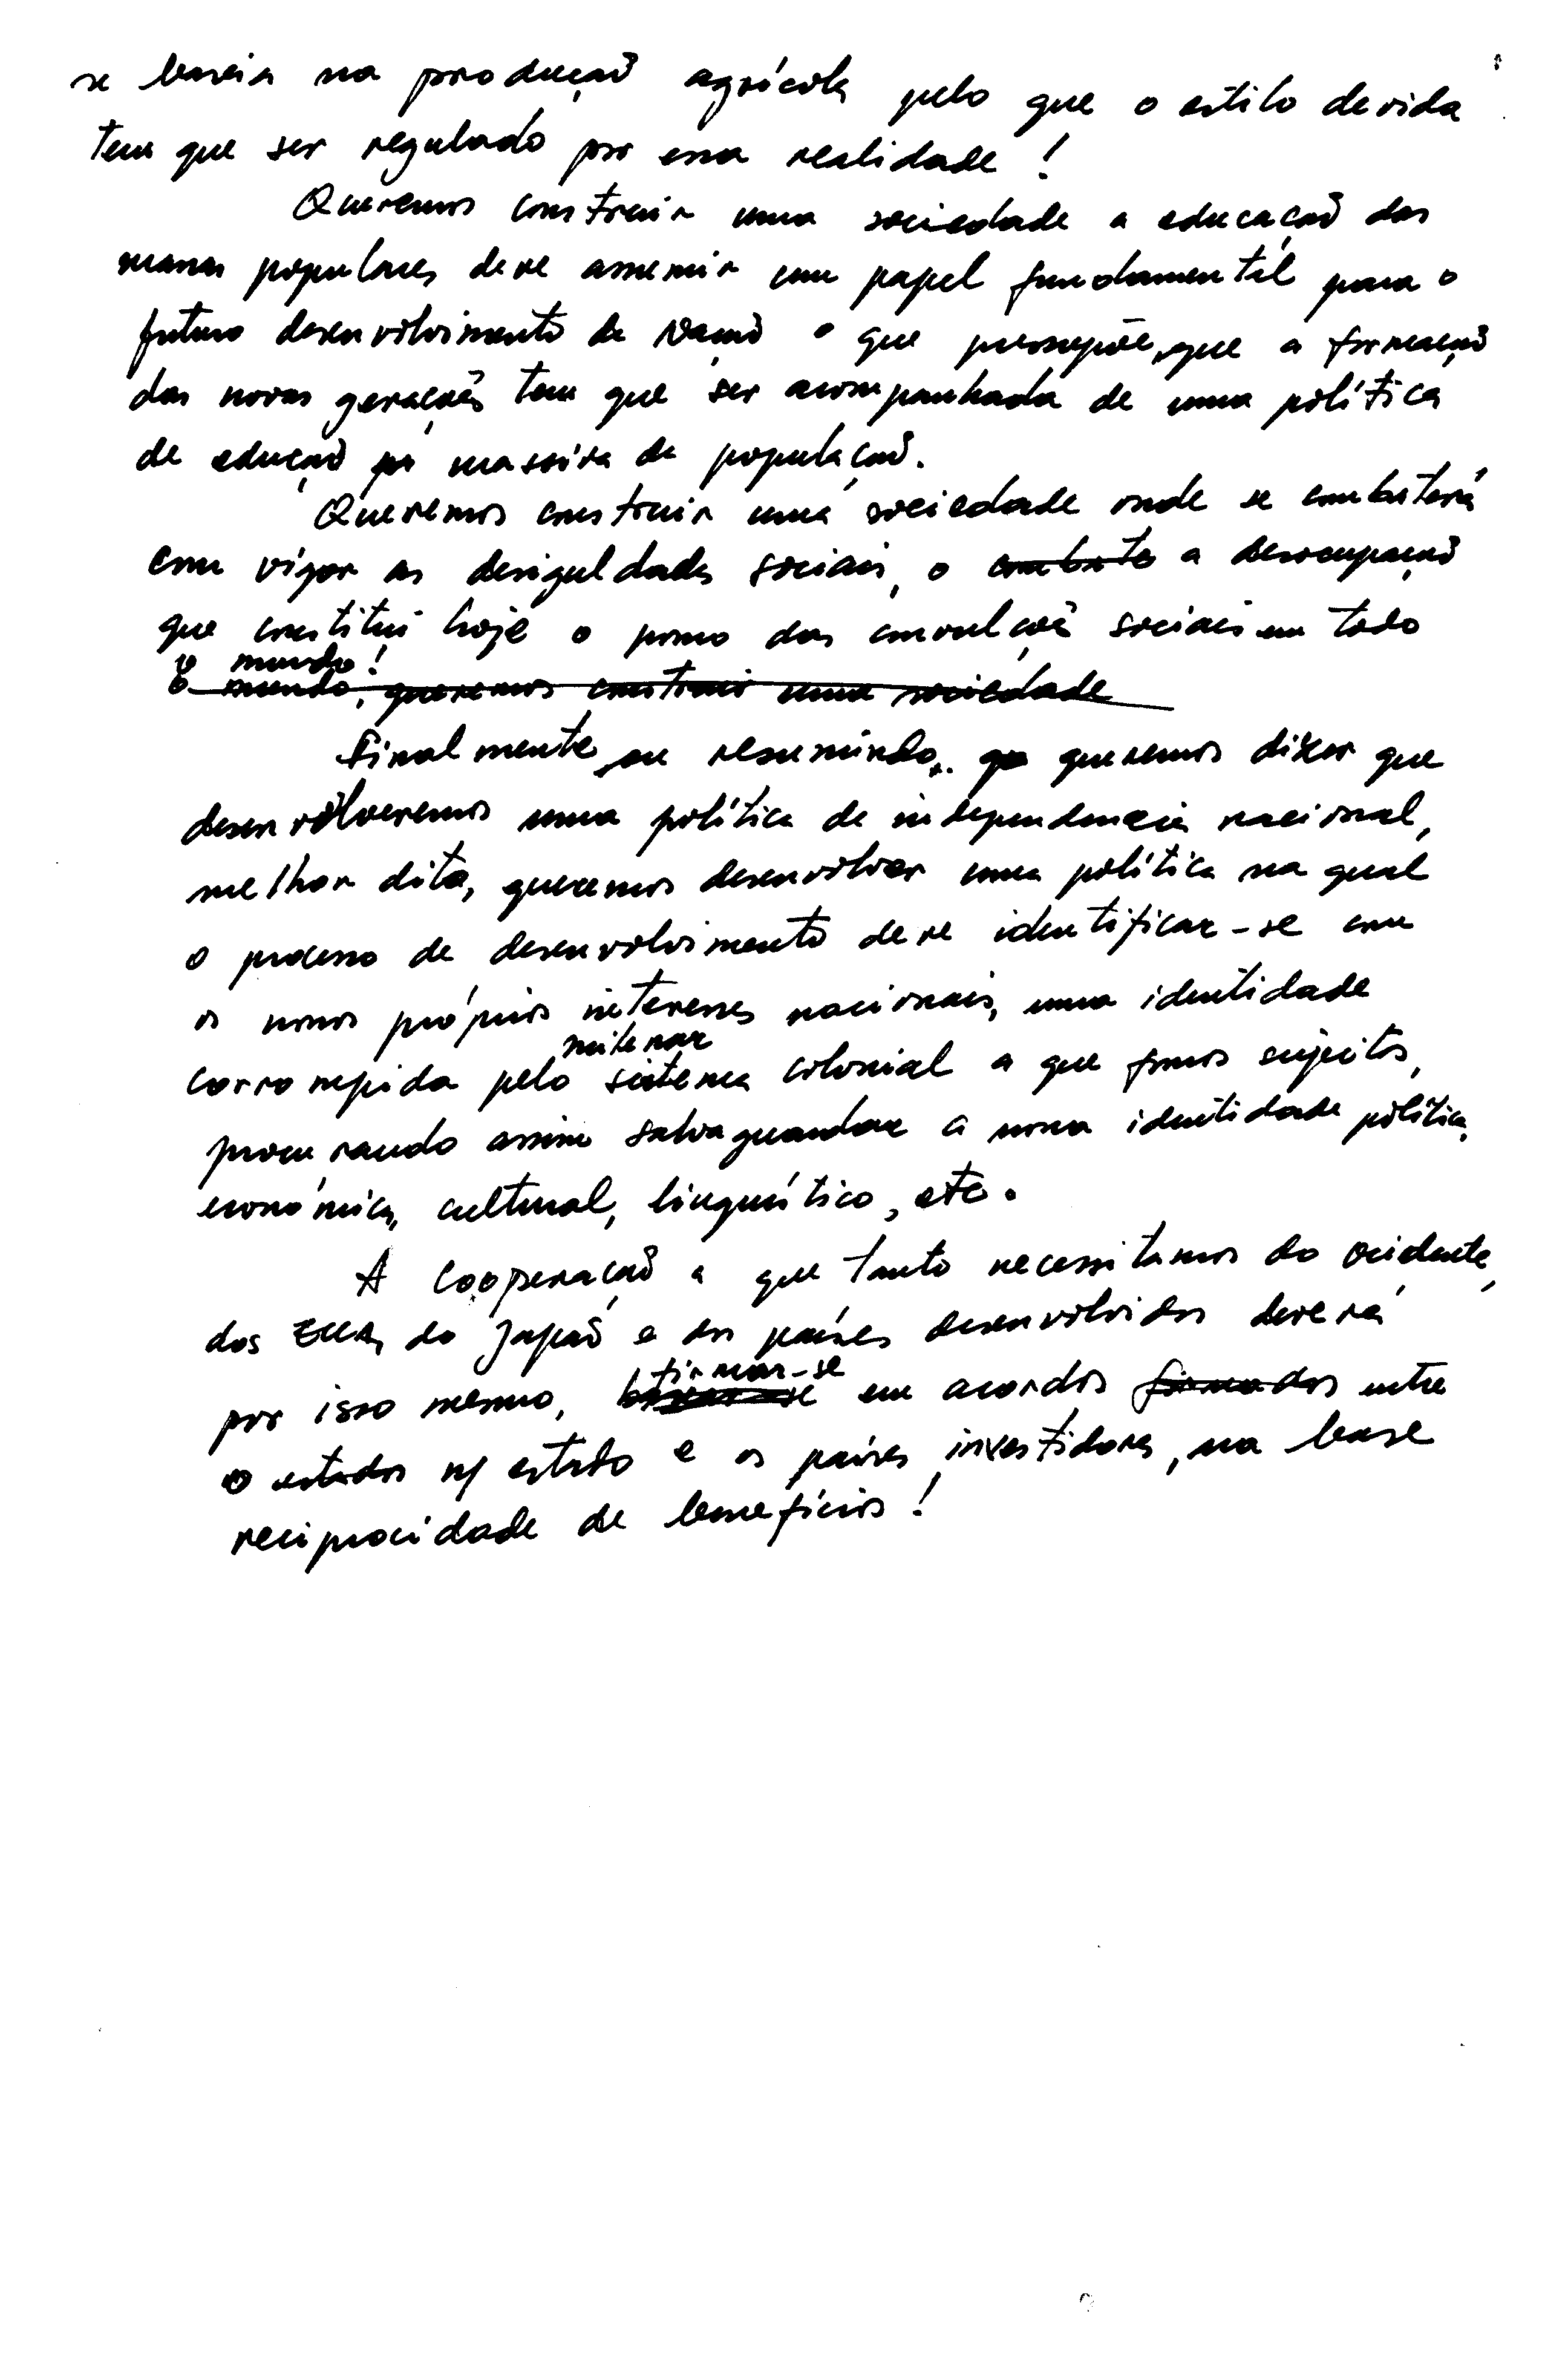 se baseia na produção agrícola pelo que o estilo de vida
tem que ser regulado por essa realidade!
Queremos construir uma sociedade a educação das
massas populares deve assumir um papel fundamental para o
futuro desenvolvimento da Nação o que pressupõe, que a formação
das novas gerações tem que ser acompanhada de uma política
de edução massiva da população.
Queremos construir uma sociedade onde se combaterá
com vigor as desiguldades sociais, o combate a desocupação
que constitui hoje o pomo das convulções sociais em todo
o mundo!
o mundo, queremos construir uma sociedade
Finalmente, ou resumindo, queremos dizer que
desenvolveremos uma política de independencia nacional,
melhor dito, queremos desenvolver uma política na qual
o processo de desenvolvimento deve identificar-se com
os nossos próprios interesses nacionais, uma identidade
milenar
corrompida pelo sistema colonial a que fomos sujeitos,
procurando assim salvaguardar a nossa identidade política,
económica, cultural, linguístico, etc.
A cooperação a que tanto necessitamos do ocidente,
dos EUA, do Japão e dos países desenvolvidos deverá
firmar-se
por isso mesmo, basear-se em acordos firmados entre
o estados n/ estado e os países investidores, na base
reciprocidade de benefícios!